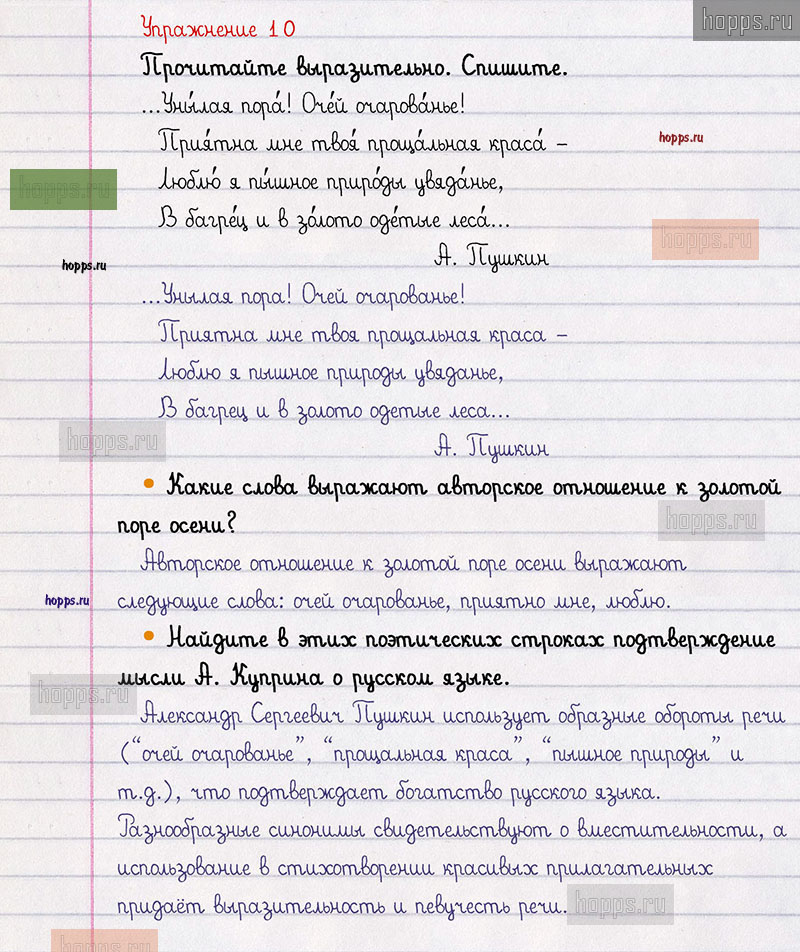 hopps.ru
Упражнение 10
Прочитайте выразительно. Спишите.
...Уны́лая пора́! Оче́й очарова́нье!
Прия́тна мне твоя́ проща́льная краса́ –
hopps.ru
Люблю́ я пы́шное приро́ды увяда́нье,
hopps.ru
В багре́ц и в зо́лото оде́тые леса́...
hopps.ru
А. Пушкин
hopps.ru
...Унылая пора! Очей очарованье!
Приятна мне твоя прощальная краса –
Люблю я пышное природы увяданье,
В багрец и в золото одетые леса...
hopps.ru
А. Пушкин
• Какие слова выражают авторское отношение к золотой
поре осени?
hopps.ru
Авторское отношение к золотой поре осени выражают
следующие слова: очей очарованье, приятно мне, люблю.
hopps.ru
• Найдите в этих поэтических строках подтверждение
мысли А. Куприна о русском языке.
hopps.ru
Александр Сергеевич Пушкин использует образные обороты речи
(“очей очарованье”, “прощальная краса”, “пышное природы” и
т.д.), что подтверждает богатство русского языка.
Разнообразные синонимы свидетельствуют о вместительности, а
использование в стихотворении красивых прилагательных
придаёт выразительность и певучесть речи.
hopps.ru
hopps.ru